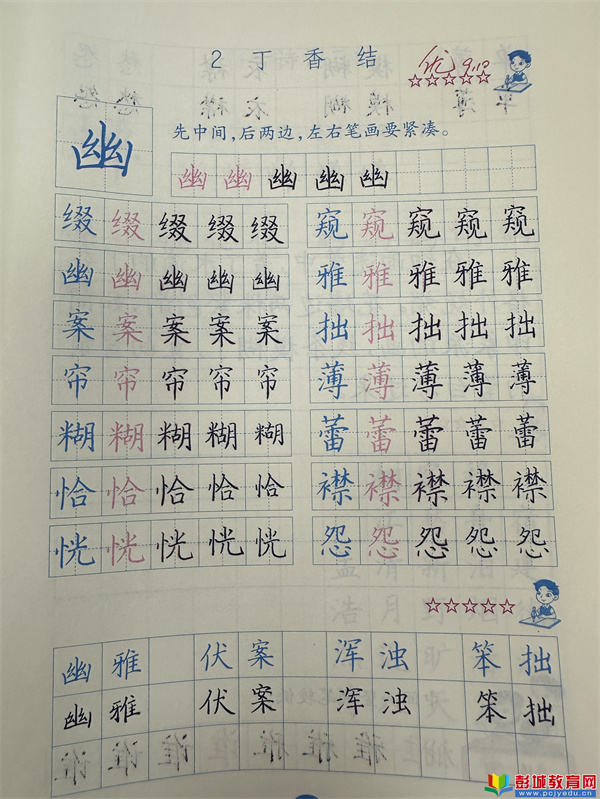 2 丁香结
优 9.19
幽
先中间,后两边,左右笔画要紧凑。
幽 幽 幽 幽 幽
缀 缀 缀 缀 缀 窥 窥 窥 窥 窥
幽 幽 幽 幽 幽 雅 雅 雅 雅 雅
案 案 案 案 案 拙 拙 拙 拙 拙
帘 帘 帘 帘 帘 薄 薄 薄 薄 薄
糊 糊 糊 糊 糊 蕾 蕾 蕾 蕾 蕾
恰 恰 恰 恰 恰 襟 襟 襟 襟 襟
恍 恍 恍 恍 恍 怨 怨 怨 怨 怨
幽雅 伏案 浑浊 笨拙
幽雅 伏案 浑浊 笨拙
彭城教育网
www.pcjyedu.cn